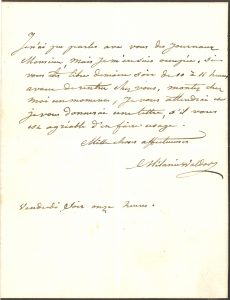 J'n'ai pu parler avec vous des journaux
Monsieur, mais je m'en suis occupée, si
vous êtes libre demain soir de 10 à 11 heures
avant de rentrer chez vous, montez chez
moi un moment, je vous attendrai et
je vous donnerai une lettre, s'il vous
est agréable d'en faire usage.
Mille choses affectueuses
Mélanie Waldor
Vendredi soir onze heures.